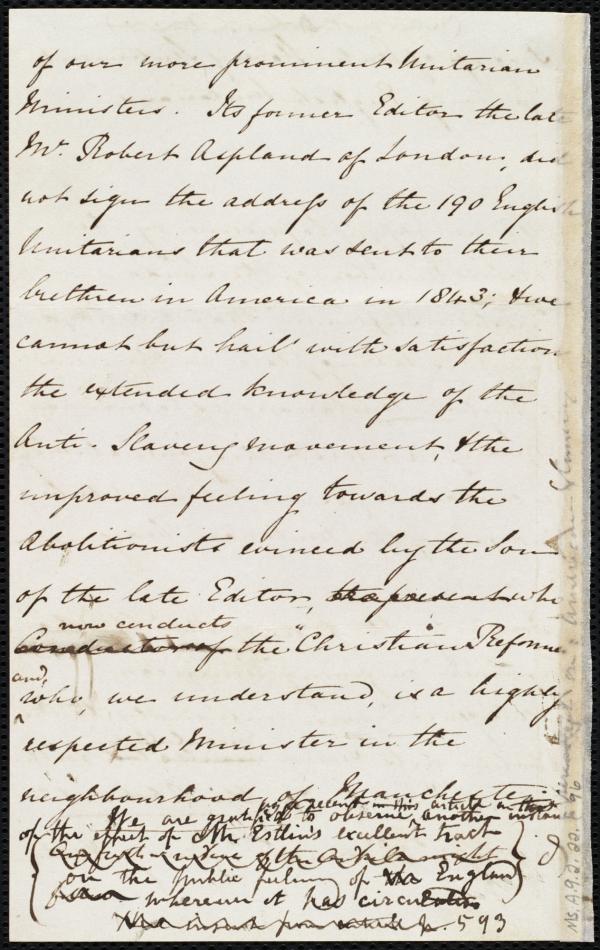 of our more prominent Unitarian
Ministers. Its former Editor the late
Mr. Robert Aspland of London, did
not sign the address of the 190 English
Unitarians that was sent to their
brethren in America in 1843; & we
cannot but hail with satisfaction
the extended knowledge of the
Anti-Slavery movement, & the
improved feeling towards the
Abolitionists evinced by the Son
of the late Editor, the present who
now conducts
Conductor of the "Christian Reformer
and,
who, we understand, is a highly
respected Minister in the
neighbourhood of Manchester.
in this article on that
We are gratified to observe, another instance
of the effect of Mr Estlin's excellent tract
on the public feeling of England
wherever it has circulated
p. 593
Ms. A.9.2.22. p. 96